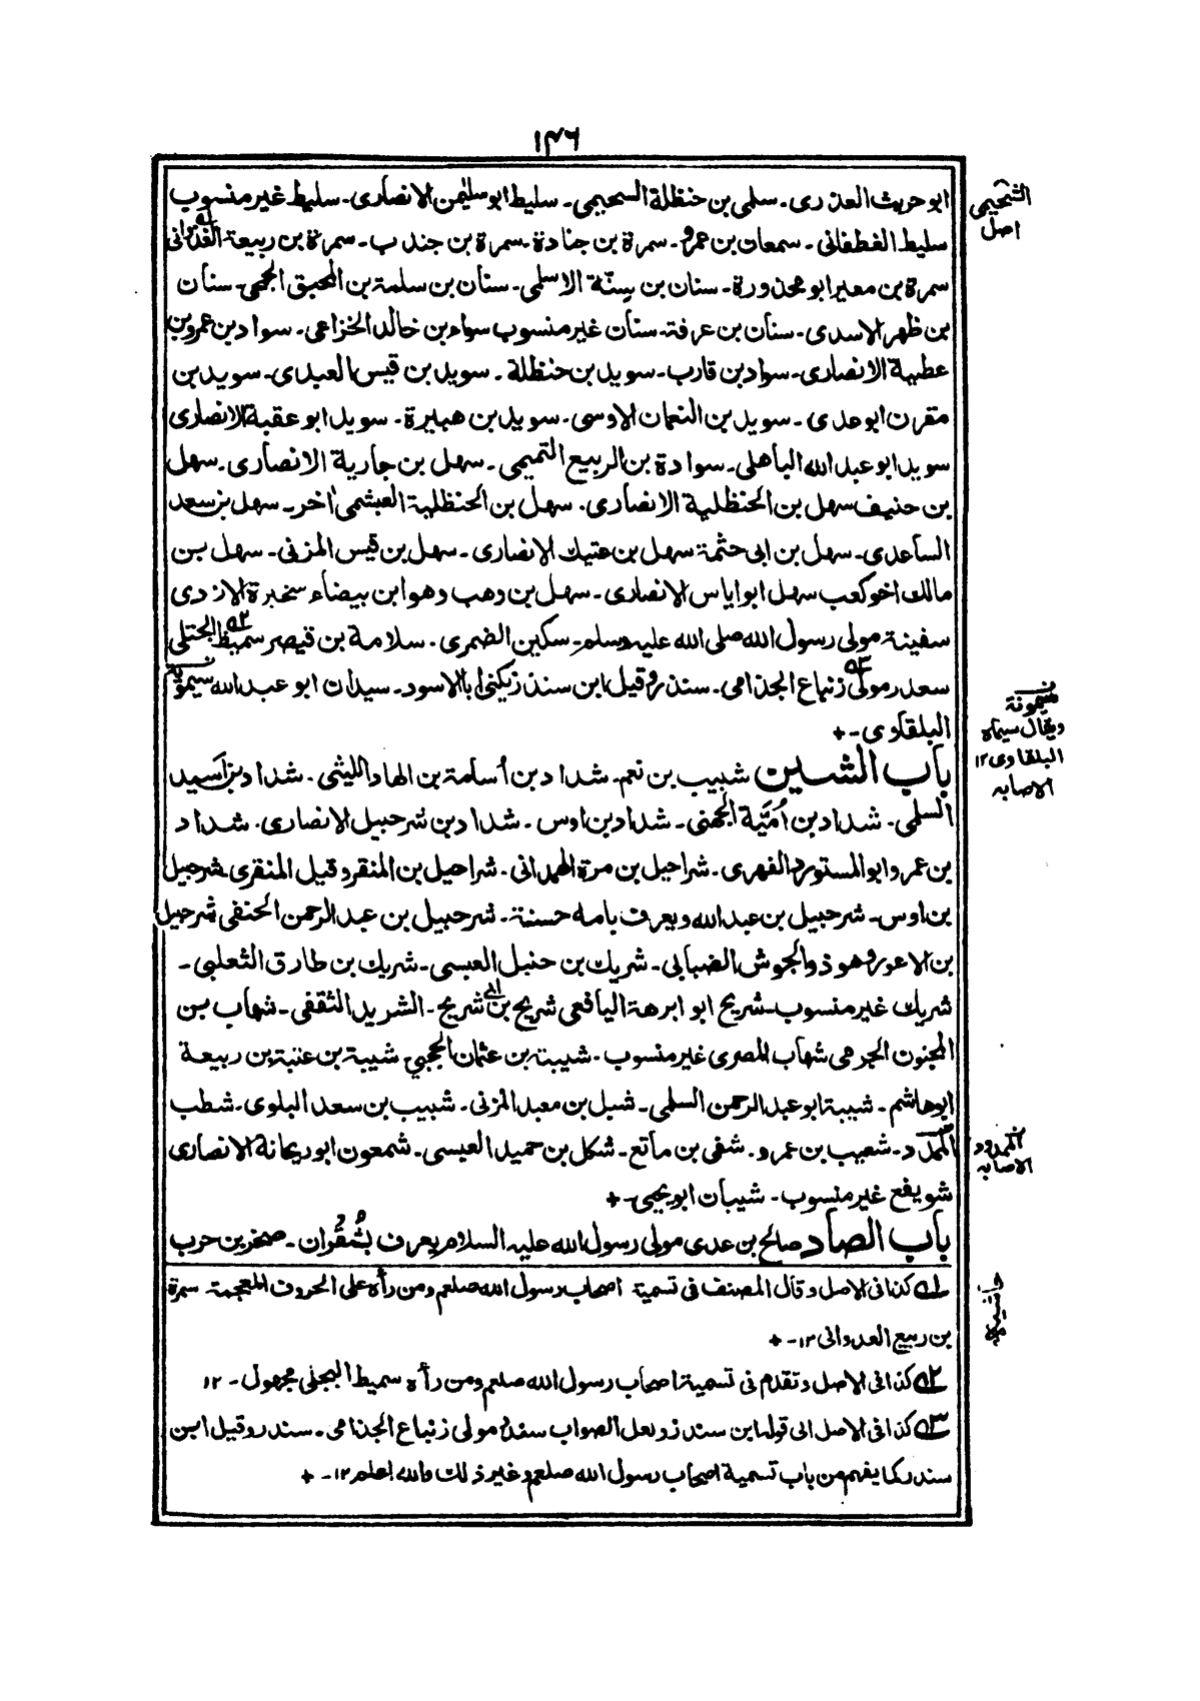 ١٣٦
ابو حريث العذرى۔ سلمى بن حنظلة السحيمى۔ سليط ابو سليمٰن الانصارى۔ سليط غير منسوب
سليط الغطفانى۔ سمعان بن عمرو۔ سمرة بن جنادة۔ سمرة بن جندب۔ سمرة بن ربيعة العدوانى
سمرة بن معير ابو محذورة۔ سنان بن سنّة الاسلمى۔ سنان بن سلمة بن المحبق الجمحى۔ سنان
بن ظهر الاسدى۔ سنان بن عرفة۔ سنان غير منسوب سواد بن خالد الخزاعى۔ سواد بن عمرو بن
عطية الانصارى۔ سواد بن قارب۔ سويد بن حنظلة۔ سويد بن قيس العبدى۔ سويد بن
مقرن ابو عدى۔ سويد بن النعمان الاوسى۔ سويد بن هبيرة۔ سويد ابو عقبة الانصارى
سويد ابو عبد الله الباهلى۔ سوادة بن الربيع التميمى۔ سهل بن جارية الانصارى۔ سهل
بن حنيف سهل بن الحنظلية الانصارى۔ سهل بن الحنظلية العبشمى اٰخر۔ سهل بن سعد
الساعدى۔ سهل بن ابى حثمة سهل بن عتيك الانصارى۔ سهل بن قيس المزنى۔ سهل بن
مالك اخو كعب سهل ابو اياس الانصارى۔ سهل بن وهب وهو ابن بيضاء سخبرة الازدى
سفينة مولى رسول الله صلى الله عليه وسلم۔ سكين الضمرى۔ سلامة بن قيصر سميط ٢ البجلى
سعدر مولى ٣ زنباع الجذامى۔ سندر وقيل ابن سندر يكنى ابا الاسود۔ سيدان ابو عبد الله سيمويه
البلقاوى۔+
باب الشين شبيب بن نعيم۔ شداد بن أسامة بن الهاد الليثى۔ شداد بن أسيد
السلمى۔ شداد بن أُمَيَّة الجهنى۔ شداد بن اوس۔ شداد بن شرحبيل الانصارى۔ شداد
بن عمرو ابو المستورد الفهرى۔ شراحيل بن مرة الهمدانى۔ شراحيل بن المنقر وقيل المنقرى شرحبيل
بن اوس۔ شرحبيل بن عبد الله ويعرف بامه حسنة۔ شرحبيل بن عبد الرحمن الحنفى شرحبيل
بن الاعور وهو ذو الجوش الضبابى۔ شريك بن حنبل العبسى۔ شريك بن طارق الثعلبى۔
شريك غير منسوب۔ شريح ابو ابرهة اليافعى شريح بن ابى شريح۔ الشريد الثقفى۔ شهاب بن
المجنون الجرمى شهاب المصرى غير منسوب۔ شيبة بن عثمان الحجبى شيبة بن عتبة بن ربيعة
ابو هاشم۔ شيبة ابو عبد الرحمن السلمى۔ شبل بن معبد المزنى۔ شبيب بن سعد البلوى۔ شطب
الممد د۔ شعيب بن عمرو۔ شفى بن ماتع۔ شكل بن حميد العبسى۔ شمعون ابو ريحانة الانصارى
شويفع غير منسوب۔ شيبان ابو يحيى۔+
باب الصاد صالح بن عدى مولى رسول الله عليه السلام يعرف بشُقْران۔ صخر بن حرب
١ كذا فى الاصل وقال المصنف فى تسمية اصحاب رسول الله صلعم ومن رأه على الحروف المعجمة۔ سمرة
بن ربيع العدوانى ١٢۔+
٢ كذا فى الاصل وتقدم فى تسمية اصحاب رسول الله صلعم ومن رأه سميط البجلى مجهول۔ ١٢
٣ كذا فى الاصل الى قوله ابن سندر ولعل الصواب سندر مولى زنباع الجذامى۔ سندر وقيل ابن
سندر كما يفهم من باب تسمية اصحاب رسول الله صلعم وغير ذلك والله اعلم ١٢۔+
الشحيمى
اصل
ميمونة
ويقال سيماه
البلقاوى ١٢
الاصابه
الممدود
الاصابه
حاشيه